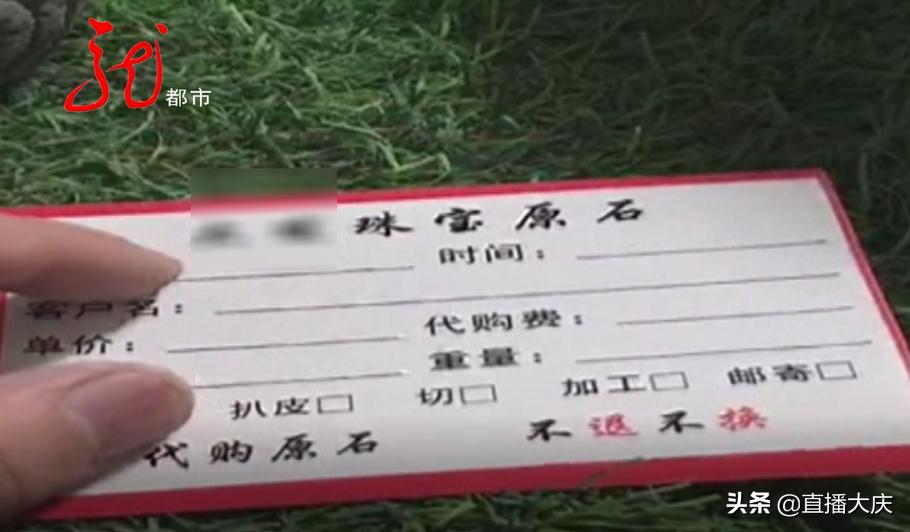 龙
都市
珠宝原石
时间：
客户名：
单价：
代购费：
重量：
扒皮□ 切□ 加工□ 邮寄□
代购原石 不退不换
头条 @直播大庆